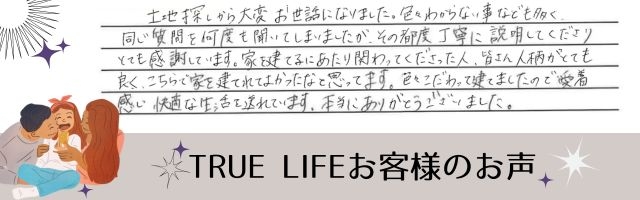 土地探しから大変お世話になりました。色々わからない事なども多く、
同じ質問を何度も聞いてしまいましたが、その都度丁寧に説明してくださり
とても感謝しています。家を建てるにあたり関わってくださった人、皆さん人柄がとても
良く、こちらで家を建てれてよかったなと思ってます。色々こだわって建てましたので愛着
感じ快適な生活を送れています。本当にありがとうございました。
TRUE LIFEお客様のお声